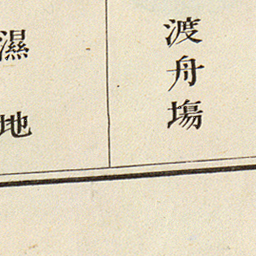 渡舟塲
濕地